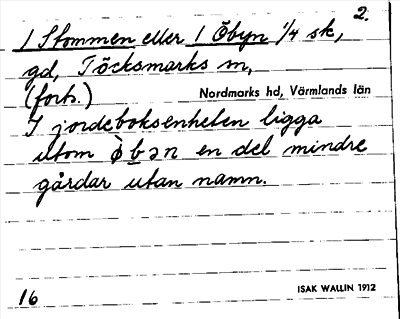 2.
1 Stommen eller 1 Öbyn 1/4 sk,
gd, Töcksmarks sn,
(forts.) Nordmarks hd, Värmlands län
I jordeboksenheten ligga
utom ò̀bən en del mindre
gårdar utan namn.
16 ISAK WALLIN 1912